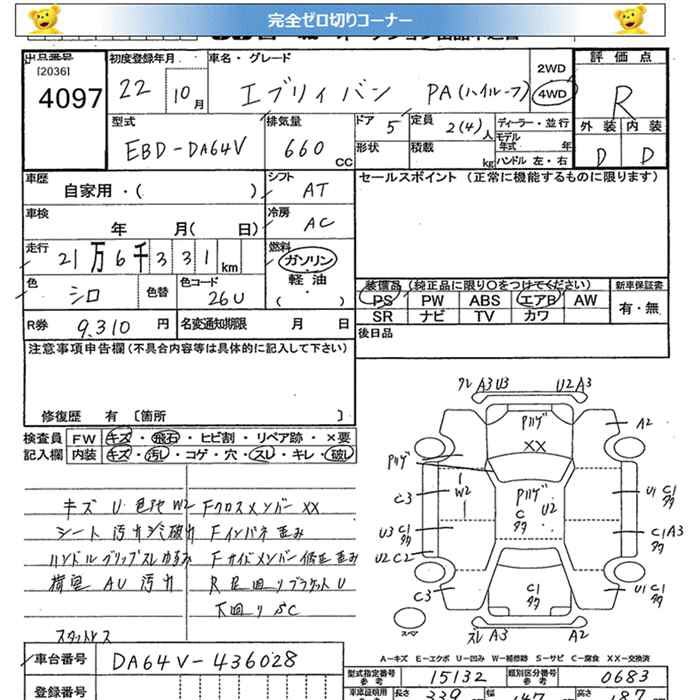 完全ゼロ切りコーナー
出品番号
[2036]
4097
初度登録年月
22 10月
車名・グレード
エブリィバン PA(ハイルーフ)
2WD
4WD
評価点
R
外装 内装
D D
型式
EBD-DA64V
排気量
660 CC
ドア 5
形状
定員 2(4)人
積載 kg
ディーラー・並行
モデル年式 年
ハンドル 左・右
車歴
自家用・( )
シフト
AT
車検
年 月( 日)
冷房
AC
走行
21万6千331km
燃料
ガソリン
軽油
( )
色
シロ
色替
色コード
26U
R券 9,310円
名変通知期限 月 日
セールスポイント (正常に機能するものに限ります)
装備品(純正品に限り○をつけてください)
PS PW ABS エアB AW
SR ナビ TV カワ
新車保証書
有・無
後日品
注意事項申告欄(不具合内容等は具体的に記入して下さい)
修復歴 有〔箇所 〕
検査員 FW キズ・飛石・ヒビ割・リペア跡・×要
記入欄 内装 キズ・汚し・コゲ・穴・スレ・キレ・破し
キズ U 色地 W2
シート 汚れシミ破れ
ハンドルグリップスレゆるみ
荷室 AU 汚れ
スタットレス
Fクロスメンバー XX
Fインパネ 歪み
Fサイドメンバー 修正歪み
R足回りブラケットU
下回り SC
クレ A3 U3 U2 A3
Pハゲ
A2
XX
Pハゲ
W2
Pハゲ
U2
C
タワ
C3
U1 C1
タワ
U3 C1
タワ
U2 C2
C1 A3
タワ
C3
C1
タワ
U1 C1
タワ
スペア
ズレ A3 A2
A-キズ E-エクボ U-凹み W-補修跡 S-サビ C-腐食 XX-交換済
車台番号 DA64V-436028
登録番号
型式指定番号 参考 15132
類別区分番号 参考 0683
車庫証明用 参考 長さ 339 幅 147 高さ 187